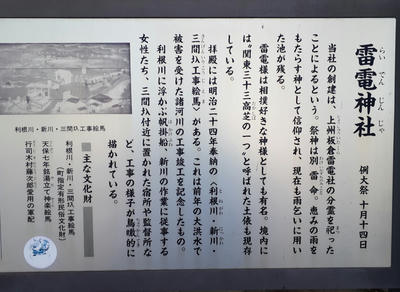 らいでんじんじゃ
雷電神社
例大祭 十月十四日
当社の創建は、上州板倉雷電社の分霊を祀った
ことによるという。祭神は別雷命。恵みの雨を
もたらす神として信仰され、現在も雨乞いに用い
た池が残る。
雷電様は相撲好きな神様としても有名。境内に
は“関東三十三高芝の一つ”と呼ばれた土俵も現存
している。
拝殿には明治二十四年奉納の〈利根川・新川・
三間圦工事絵馬〉がある。これは前年の大洪水で
被害を受けた諸河川の工事竣工を記念したもの。
利根川に浮かぶ帆掛船、新川の作業に従事する
女性たち、三間圦付近に置かれた宿所や監督所な
ど、工事の様子が鳥瞰的に
描かれている。
主な文化財
利根川・新川・三間圦工事絵馬
(町指定有形民俗文化財)
天保七年銘湯立て神楽絵馬
行司木村藤次郎愛用の軍配
利根川・新川・三間圦工事絵馬